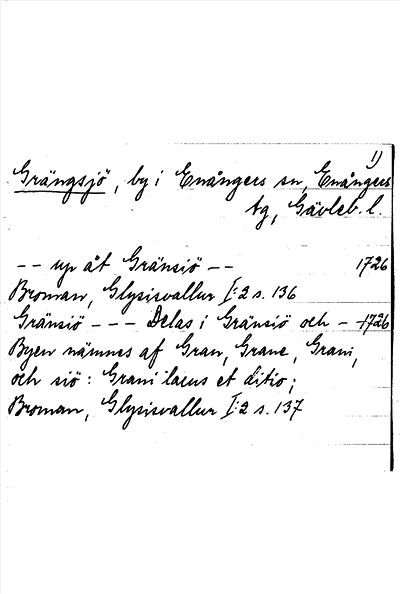 1)
Grängsjö, by i Enångers sn, Enångers
tg, Gävleb. l.
-- up åt Gränsiö -- 1726
Broman, Glysisvallur I:2 s. 136
Gränsiö --- Delas i Gränsiö och - 1726
Byen nämnes af Gran, Grane, Grani,
och siö: Grani lacus et ditio;
Broman, Glysisvallur I:2 s. 137